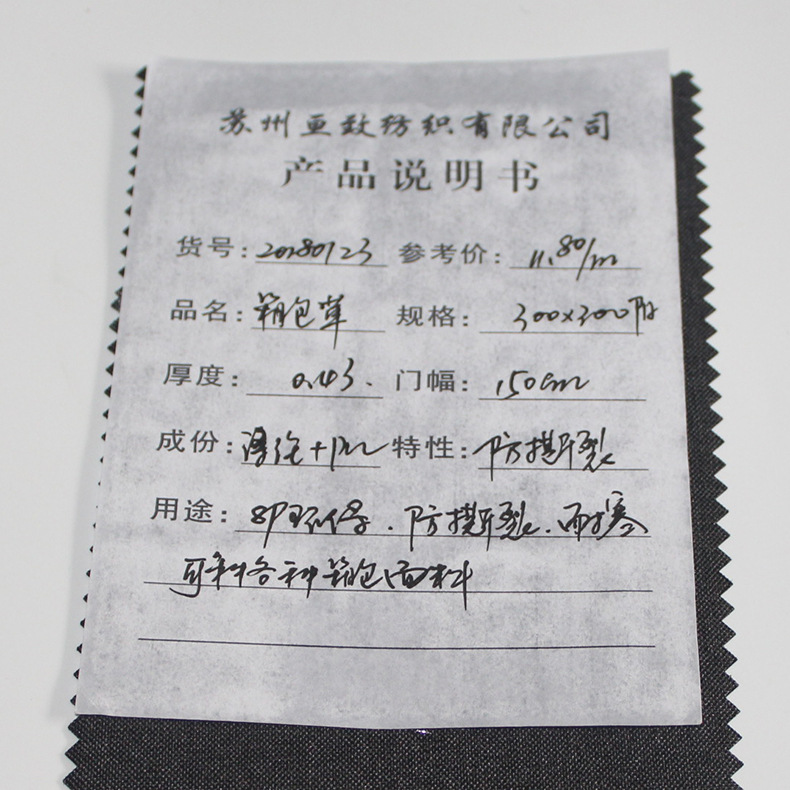 苏州亚致纺织有限公司
产品说明书
货号: 20180123 参考价: 11.80/m
品名: 箱包革 规格: 300x300阳
厚度: 0.43. 门幅: 150cm
成份: 涤纶+PU 特性: 防撕裂
用途: 8P环保、防撕裂、耐寒
可制各种箱包面料